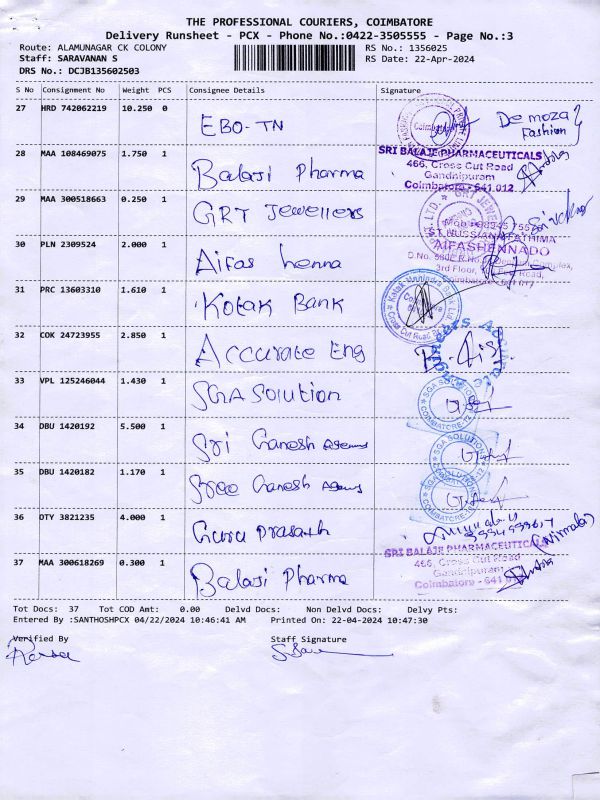 THE PROFESSIONAL COURIERS, COIMBATORE
Delivery Runsheet - PCX - Phone No.:0422-3505555 - Page No.:3
Route: ALAMUNAGAR CK COLONY RS No.: 1356025
Staff: SARAVANAN S RS Date: 22-Apr-2024
DRS No.: DCJB135602503
S No Consignment No Weight PCS Consignee Details Signature
27 HRD 742062219 10.250 0 EBO-TN Demoza Fashion
28 MAA 108469075 1.750 1 Balaji Pharma
SRI BALAJE PHARMACEUTICALS
466, Cross Cut Road
Gandhipuram
Coimbatore - 641 012
29 MAA 300518663 0.250 1 GRT Jewellers
30 PLN 2309524 2.000 1 Aifas henna
ST.HUSSIANA FATHIMA
AIFASHENNADO
3rd Floor,
31 PRC 13603310 1.610 1 Kotak Bank
Kotak Mahindra Bank Ltd.
Cross Cut Road
32 COK 24723955 2.850 1 Accurate Eng
33 VPL 125246044 1.430 1 SGA Solution
SGA SOLUTION
COIMBATORE-12
34 DBU 1420192 5.500 1 Sri Ganesh
SGA SOLUTION
COIMBATORE-12
35 DBU 1420182 1.170 1 Sree Ganesh
SGA SOLUTION
COIMBATORE-12
36 OTY 3821235 4.000 1 Guru Prasath
(Nirmala)
37 MAA 300618269 0.300 1 Balaji Pharma
SRI BALAJE PHARMACEUTICALS
466, Cross Cut Road
Gandhipuram
Coimbatore - 641 012
Tot Docs: 37 Tot COD Amt: 0.00 Delvd Docs: Non Delvd Docs: Delvy Pts:
Entered By :SANTHOSHPCX 04/22/2024 10:46:41 AM Printed On: 22-04-2024 10:47:30
Verified By Staff Signature